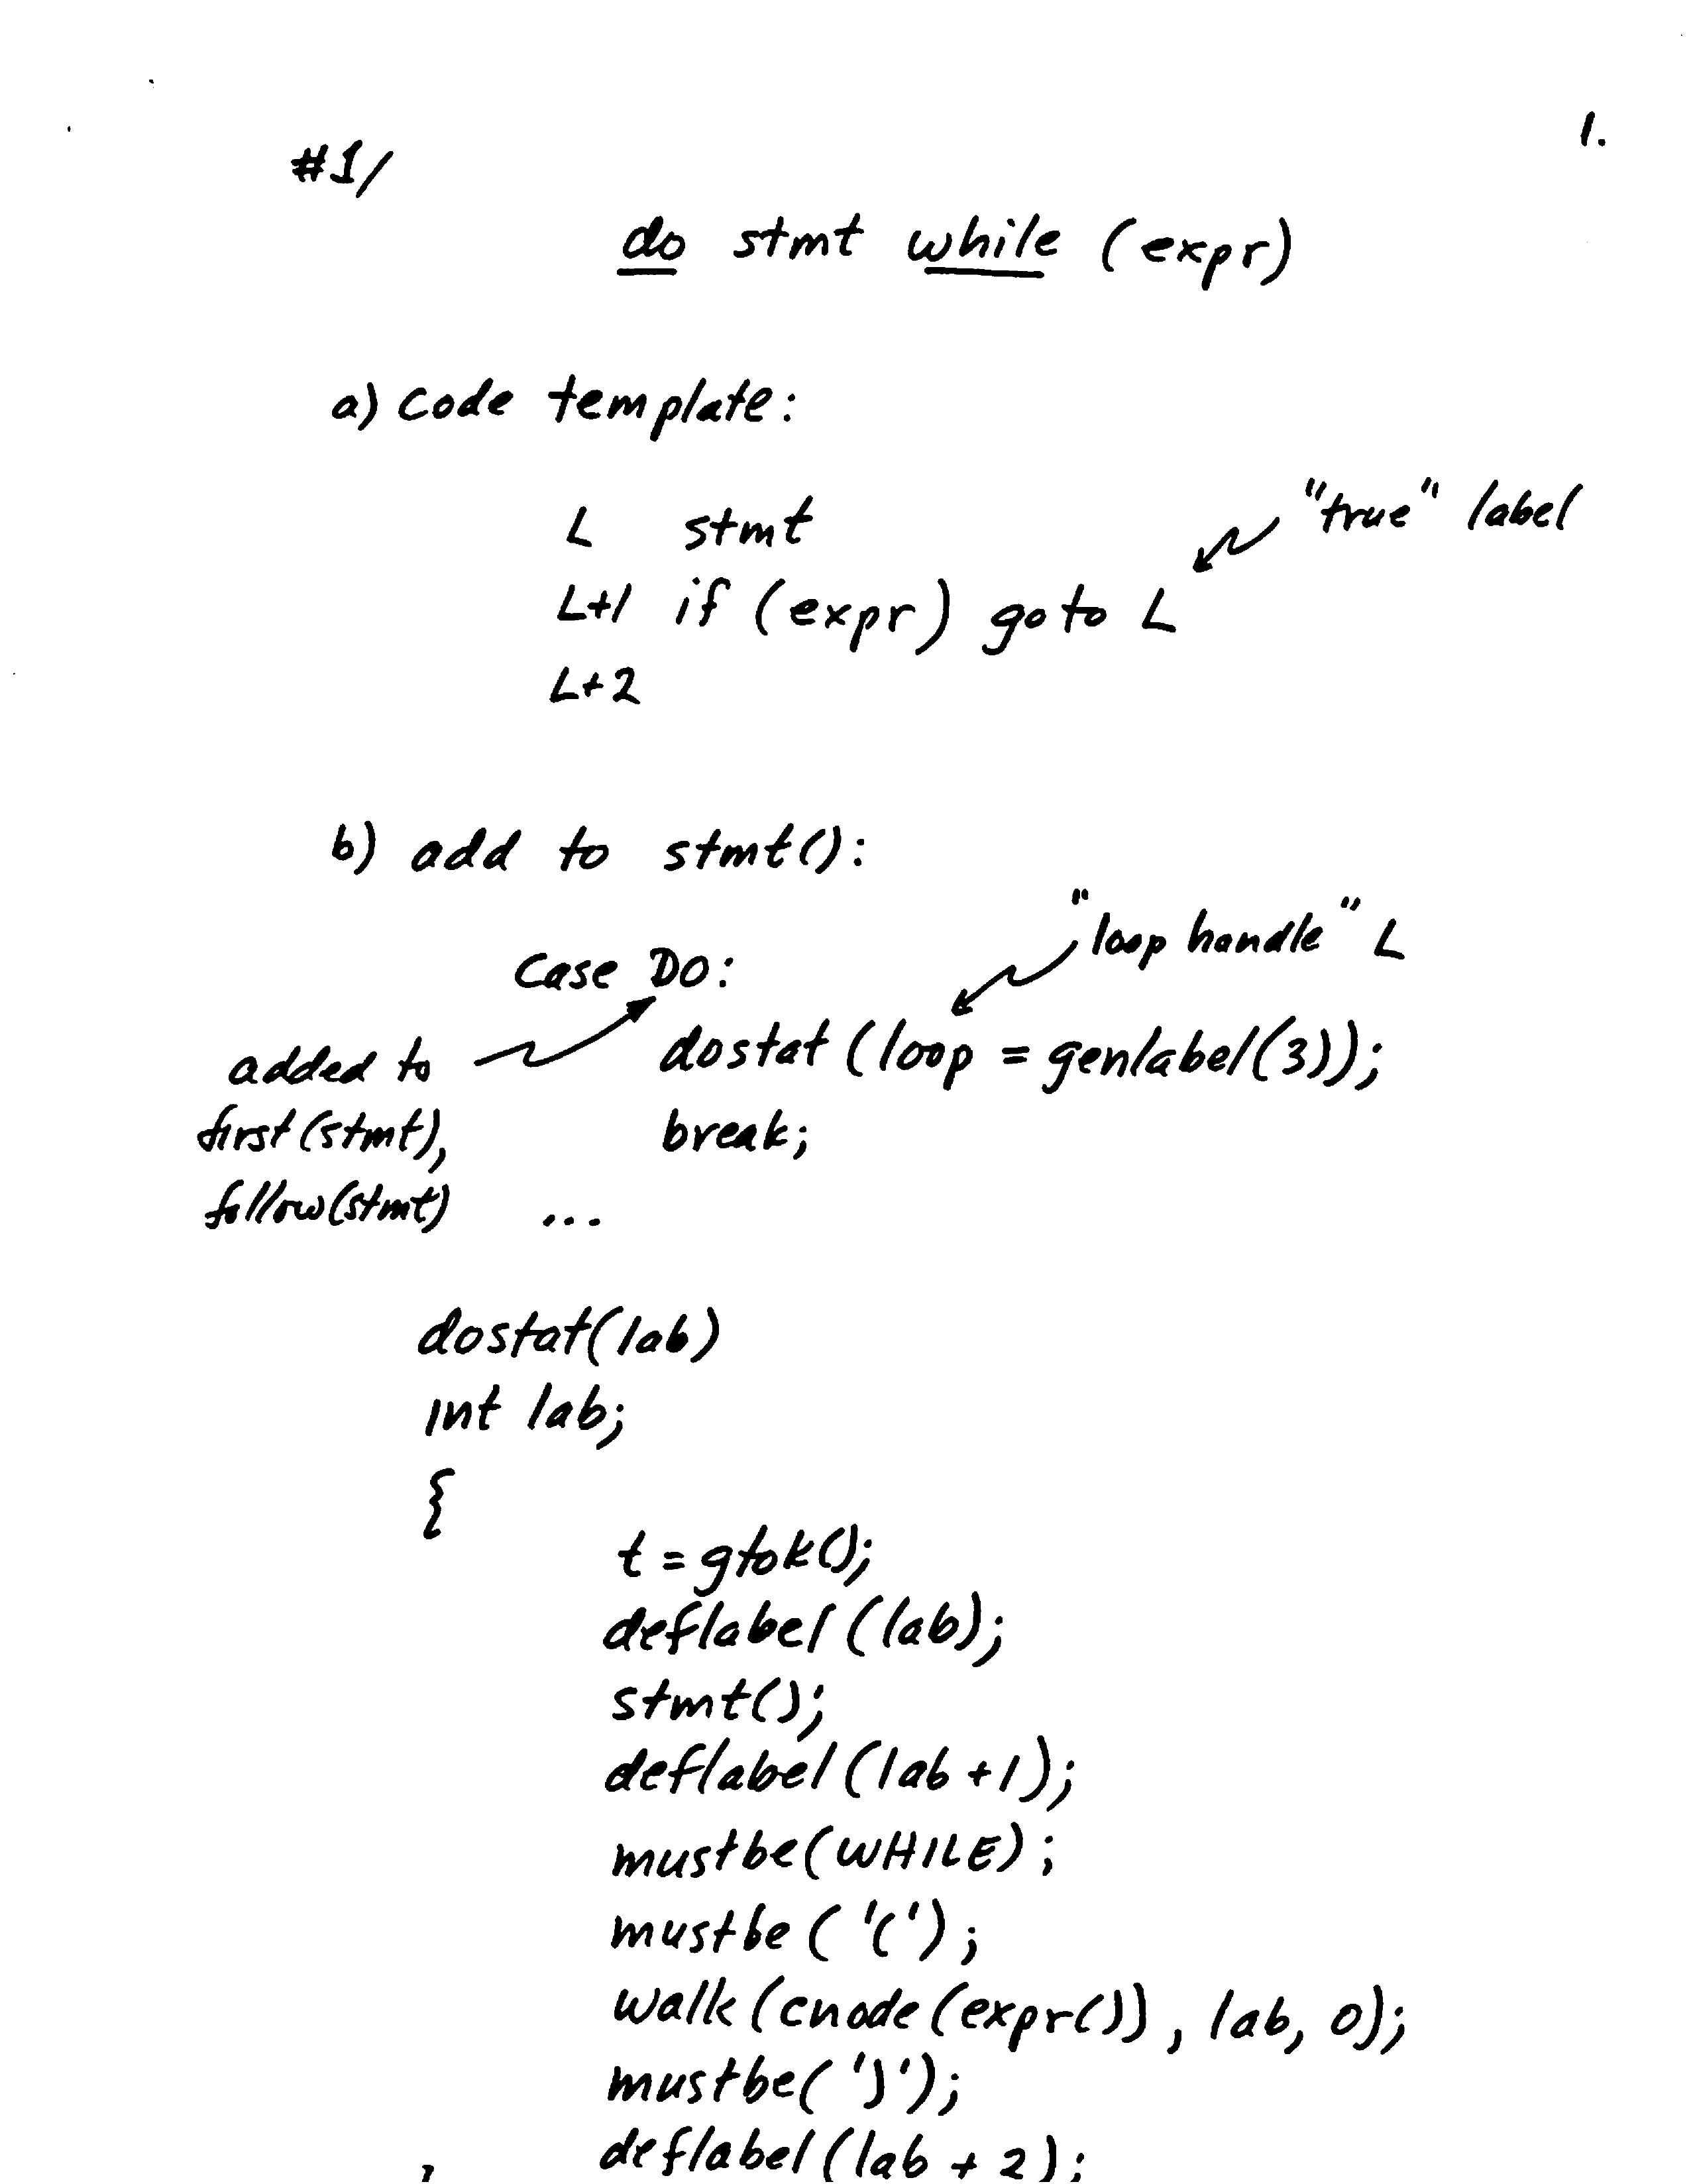 1.
#1/
do stmt while (expr)
a) code template:
L stmt
"true" label
L+1 if (expr) goto L
L+2
b) add to stmt():
"loop handle" L
case DO:
dostat (loop = genlabel(3));
added to
first(stmt),
break;
follow(stmt)
...
dostat(lab)
int lab;
{
t = gtok();
deflabel (lab);
stmt();
deflabel (lab +1);
mustbe(WHILE);
mustbe ( '(' );
walk (cnode (expr()), lab, 0);
mustbe( ')' );
deflabel (lab + 2);
}